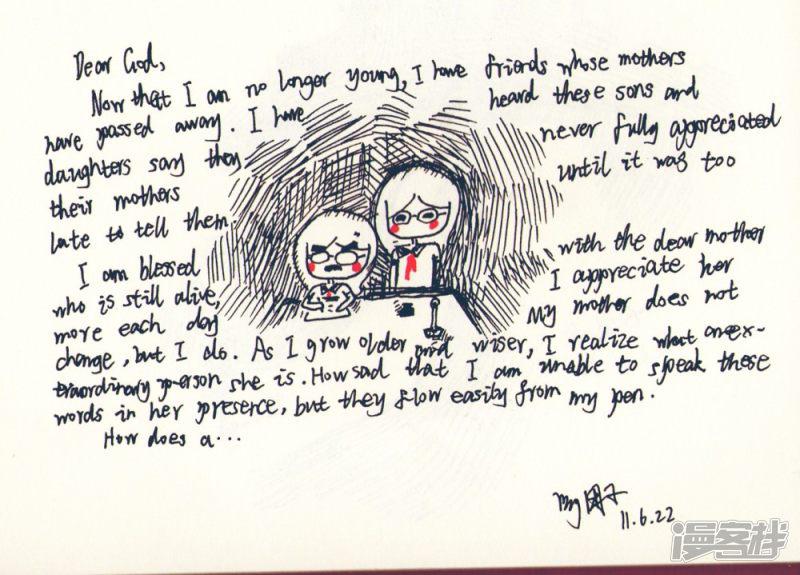 Dear God,
Now that I am no longer young, I have friends whose mothers
have passed away. I have heard these sons and
daughters say they never fully appreciated
their mothers until it was too
late to tell them
I am blessed with the dear mother
who is still alive, I appreciate her
more each day My mother does not
change, but I do. As I grow older and wiser, I realize what an ex-
traordinary person she is. How sad that I am unable to speak these
words in her presence, but they flow easily from my pen.
How does a...
11.6.22
漫客栈